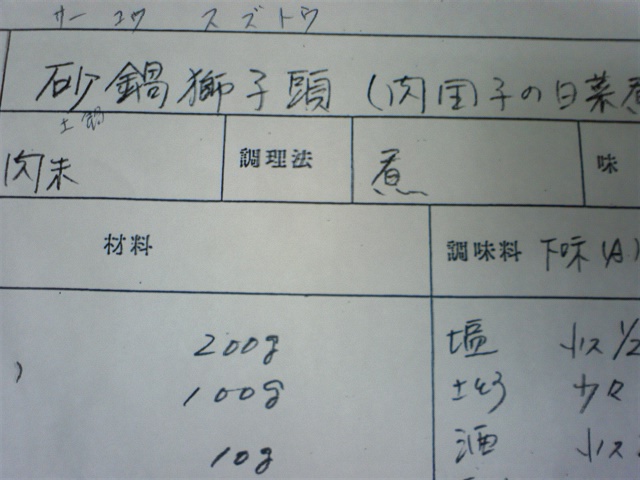 サーコウ スズトウ
砂鍋獅子頭 (肉団子の白菜煮
土鍋
肉末 調理法 煮 味
材料 調味料 下味(A)
200g 塩 小ス 1/2
) 100g 少々
10g 酒 小ス